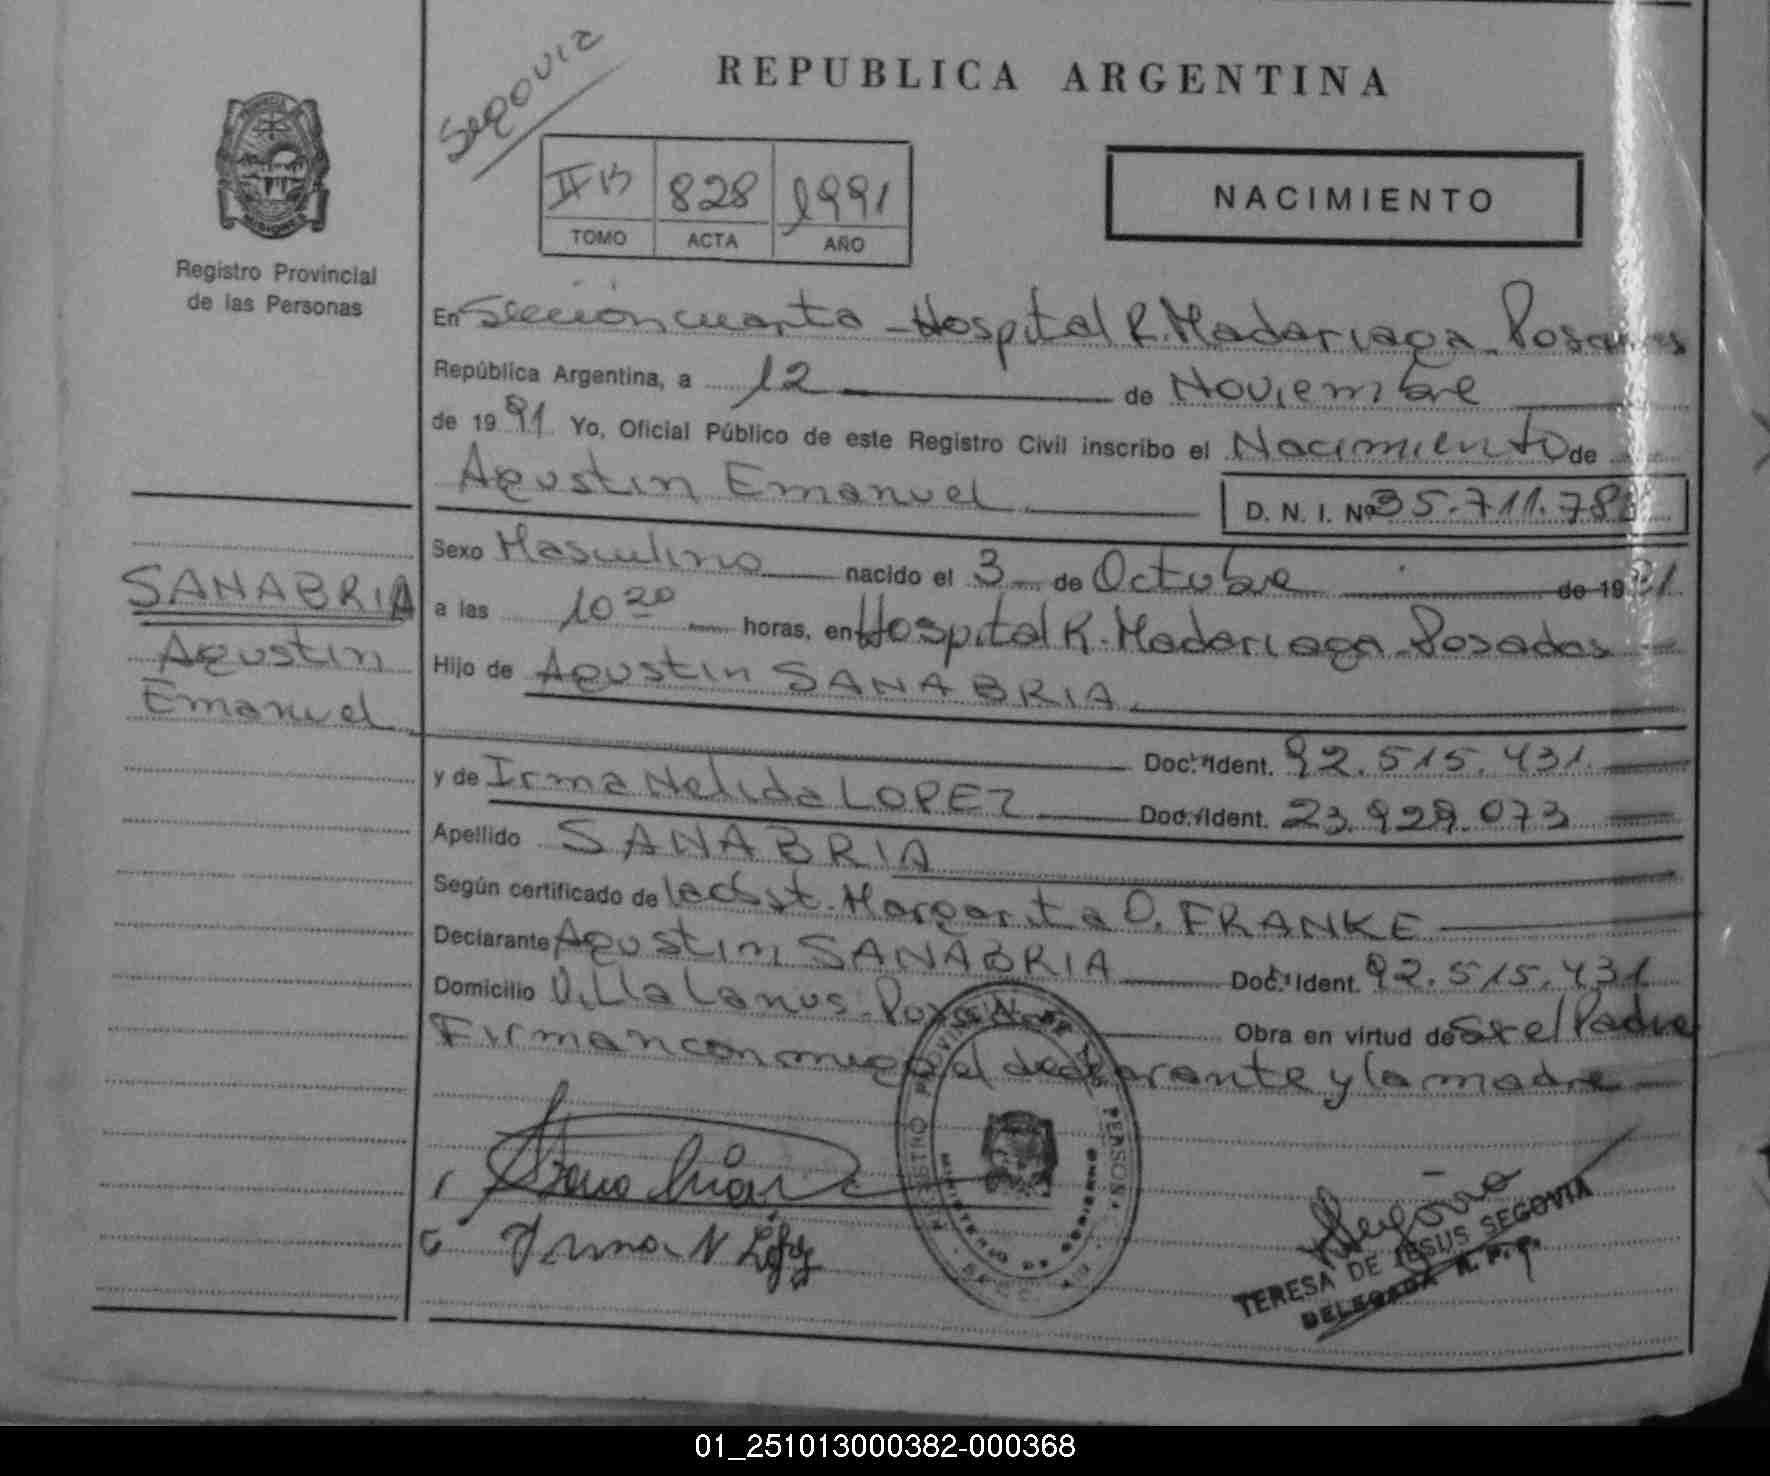 Segovia
REPUBLICA ARGENTINA
II B 828 1991
TOMO ACTA AÑO
NACIMIENTO
Registro Provincial
de las Personas
En Sección cuarta - Hospital R. Madariaga - Posadas
República Argentina, a 12 de Noviembre
de 1991 Yo, Oficial Público de este Registro Civil inscribo el Nacimiento de
Agustin Emanuel D. N. I. Nº 35.711.78
Sexo Masculino nacido el 3 de Octubre de 1991
SANABRIA
Agustin
Emanuel
a las 10 20 horas, en Hospital R. Madariaga - Posadas
Hijo de Agustin SANABRIA
Doc. Ident. 92.515.431
y de Irma Nelida LOPEZ Doc. Ident. 23.929.073
Apellido SANABRIA
Según certificado de la Obst. Margarita O. FRANKE
Declarante Agustin SANABRIA Doc. Ident. 92.515.431
Domicilio Villa Lanus - Posadas Obra en virtud de Ser el Padre
Firman conmigo el declarante y la madre
Irma N López
TERESA DE JESUS SEGOVIA
DELEGADA R. P. P.
01_251013000382-000368